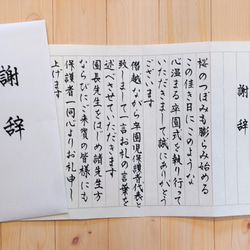 謝辞
謝辞
桜のつぼみも膨らみ始める
この佳き日にこのような
心温まる卒園式を執り行って
いただきまして誠にありがとう
ございます
僭越ながら卒園児保護者代表と
致しまして一言お礼の言葉を
述べさせていただきます
園長先生をはじめ諸先生方
ならびにご来賓の皆様にも
保護者一同心よりお礼申し
上げます